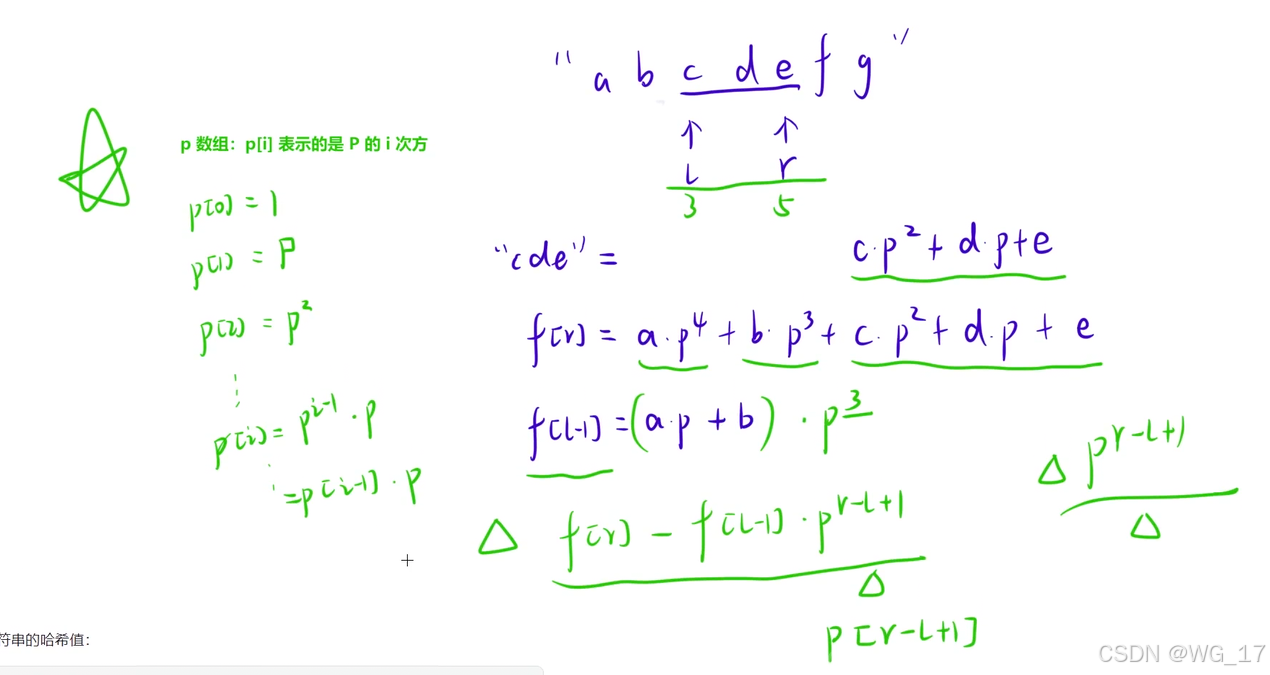 "a b c d e f g"
↑ ↑
L r
3 5
p 数组：p[i] 表示的是 P 的 i 次方
p[0] = 1
p[1] = P
p[2] = p²
⋮
p[i] = p^{i-1} · p
= p[i-1] · p
"cde" = c·p² + d·p + e
f[r] = a·p⁴ + b·p³ + c·p² + d·p + e
f[L-1] = (a·p + b) · p³
△ p^{r-L+1}
△
△ f[r] - f[L-1] · p^{r-L+1}
△
p[r-L+1]
符串的哈希值：
CSDN @WG_17